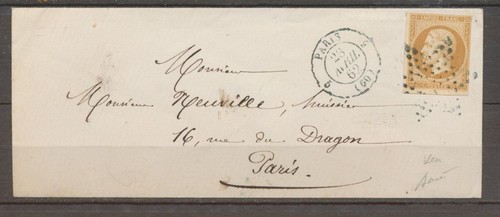 EMPIRE FRANC.
PARIS
23
AVRIL
62
(60)
Monsieur
Monsieur Neuville, huissier
16, rue du Dragon
Paris.